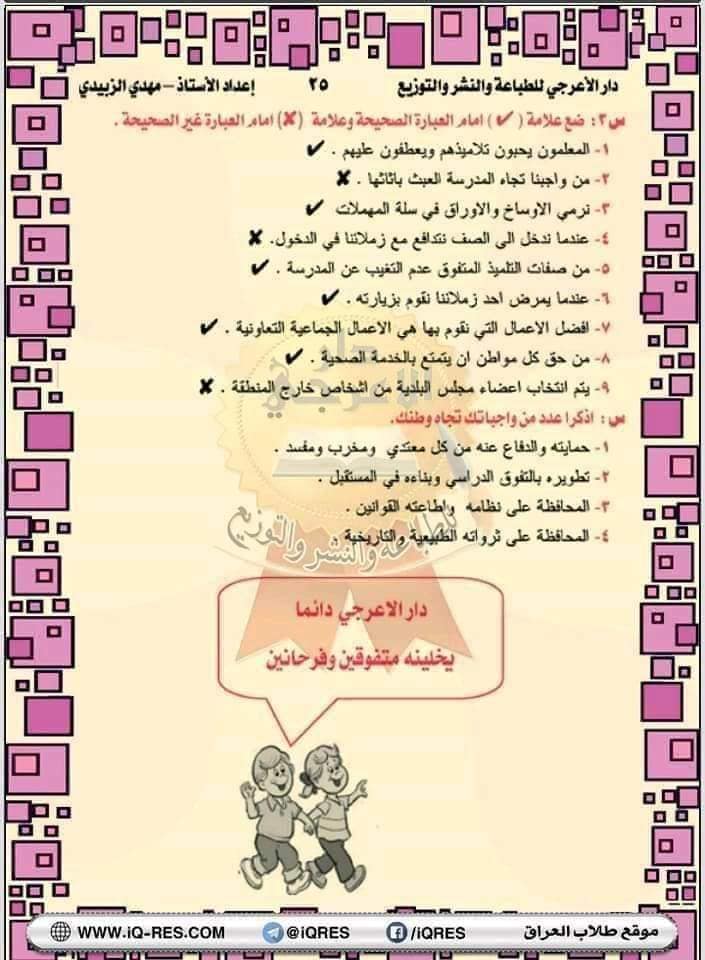 دار الأعرجي للطباعة والنشر والتوزيع ٢٥ إعداد الأستاذ – مهدي الزبيدي
س٣: ضع علامة ( ✔ ) امام العبارة الصحيحة وعلامة (✘) امام العبارة غير الصحيحة .
١- المعلمون يحبون تلاميذهم ويعطفون عليهم . ✔
٢- من واجبنا تجاه المدرسة العبث باثاثها . ✘
٣- نرمي الاوساخ والاوراق في سلة المهملات ✔
٤- عندما ندخل الى الصف نتدافع مع زملائنا في الدخول. ✘
٥- من صفات التلميذ المتفوق عدم التغيب عن المدرسة . ✔
٦- عندما يمرض احد زملائنا نقوم بزيارته . ✔
٧- افضل الاعمال التي نقوم بها هي الاعمال الجماعية التعاونية . ✔
٨- من حق كل مواطن ان يتمتع بالخدمة الصحية . ✔
٩- يتم انتخاب اعضاء مجلس البلدية من اشخاص خارج المنطقة . ✘
س : اذكرا عدد من واجباتك تجاه وطنك.
١- حمايته والدفاع عنه من كل معتدي ومخرب ومفسد .
٢- تطويره بالتفوق الدراسي وبناءه في المستقبل .
٣- المحافظة على نظامه واطاعته القوانين .
٤- المحافظة على ثرواته الطبيعية والتاريخية
دار الاعرجي
للطباعة والنشر والتوزيع
دار الاعرجي دائما
يخلينه متفوقين وفرحانين
موقع طلاب العراق /iQRES @iQRES WWW.iQ-RES.COM